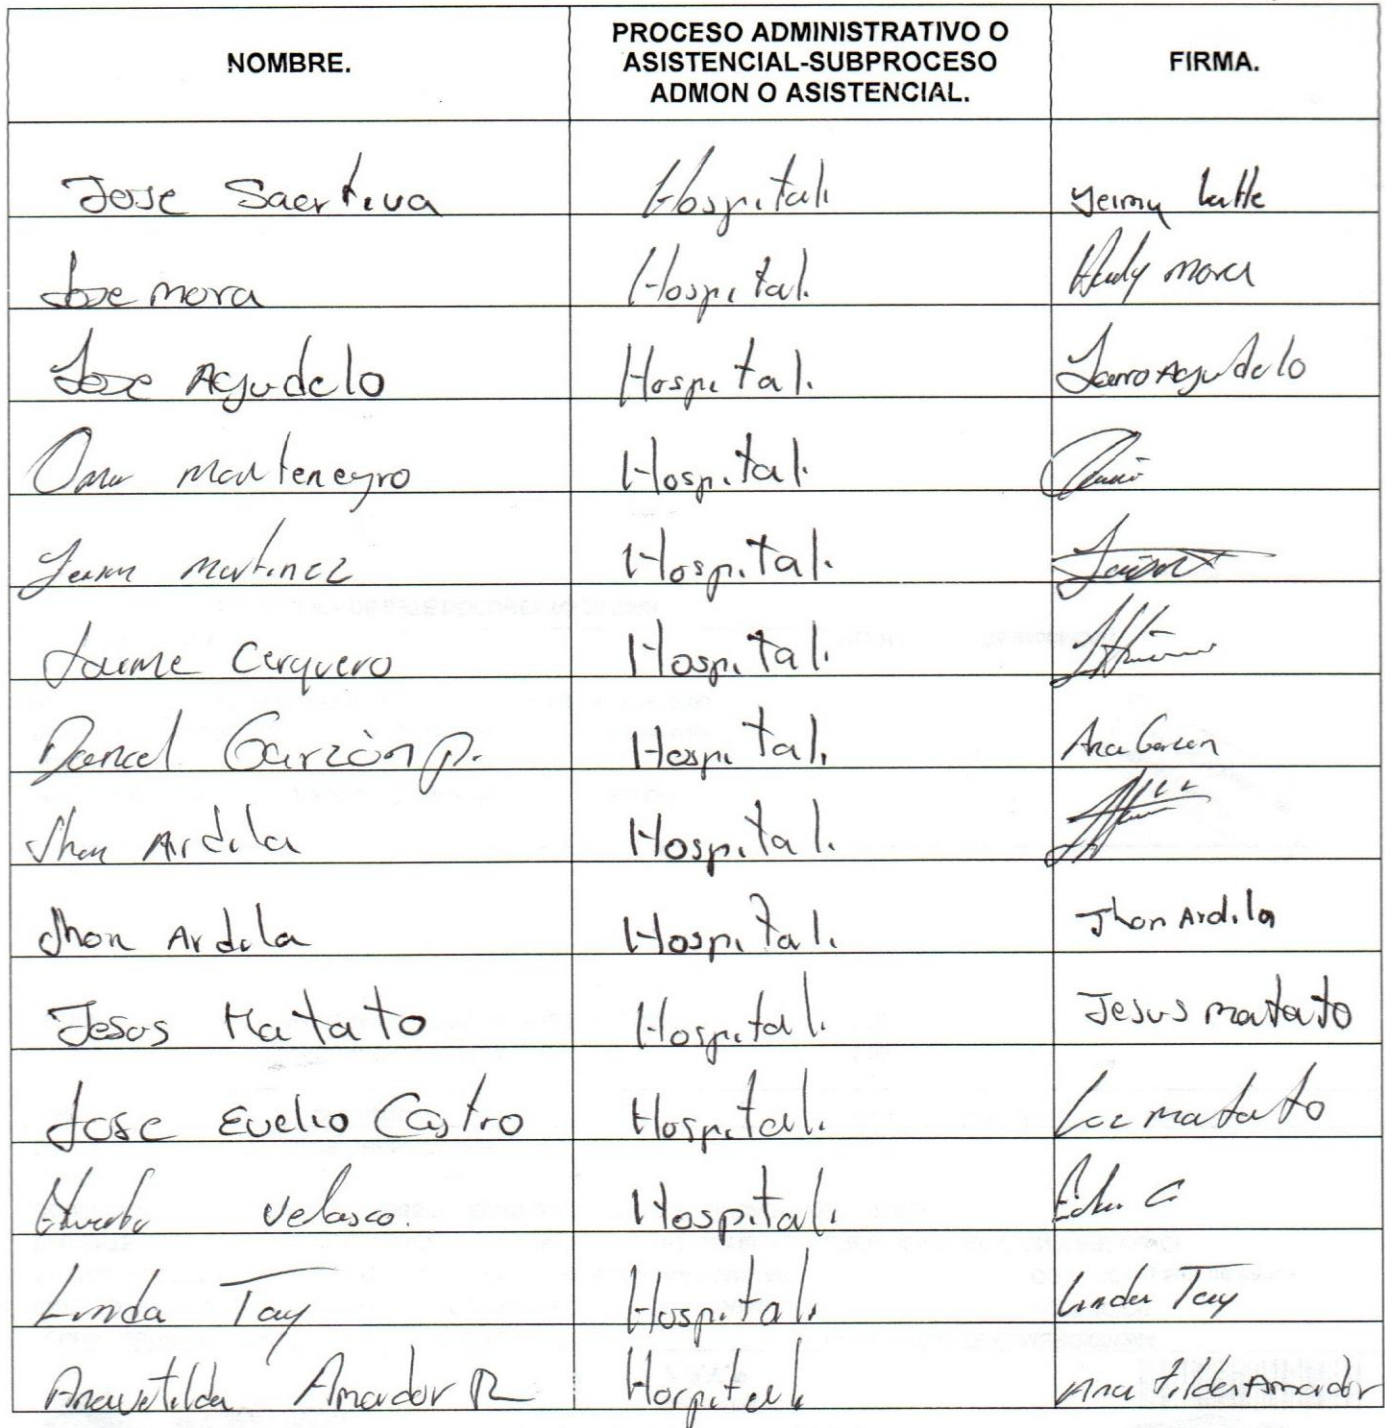 NOMBRE.
PROCESO ADMINISTRATIVO O
ASISTENCIAL-SUBPROCESO
ADMON O ASISTENCIAL.
FIRMA.
Jose Hospitali Yeimy
Jose mora Hospitali mora
Jose Agudelo Hospitali Agudelo
Omar Montenegro Hospitali
Martinez Hospitali
Jaime Cerquero Hospitali
Daniel Garzòn p. Hospitali Ana Garzon
Jhon Ardila Hospitali
Jhon Ardila Hospitali Jhon Ardila
Jesus Matato Hospitali Jesus matato
Jose Evelio Castro Hospitali Luz matato
Velasco. Hospitali
Linda Tay Hospitali Linda Tay
Amador R Hospitali Ana tilde Amador